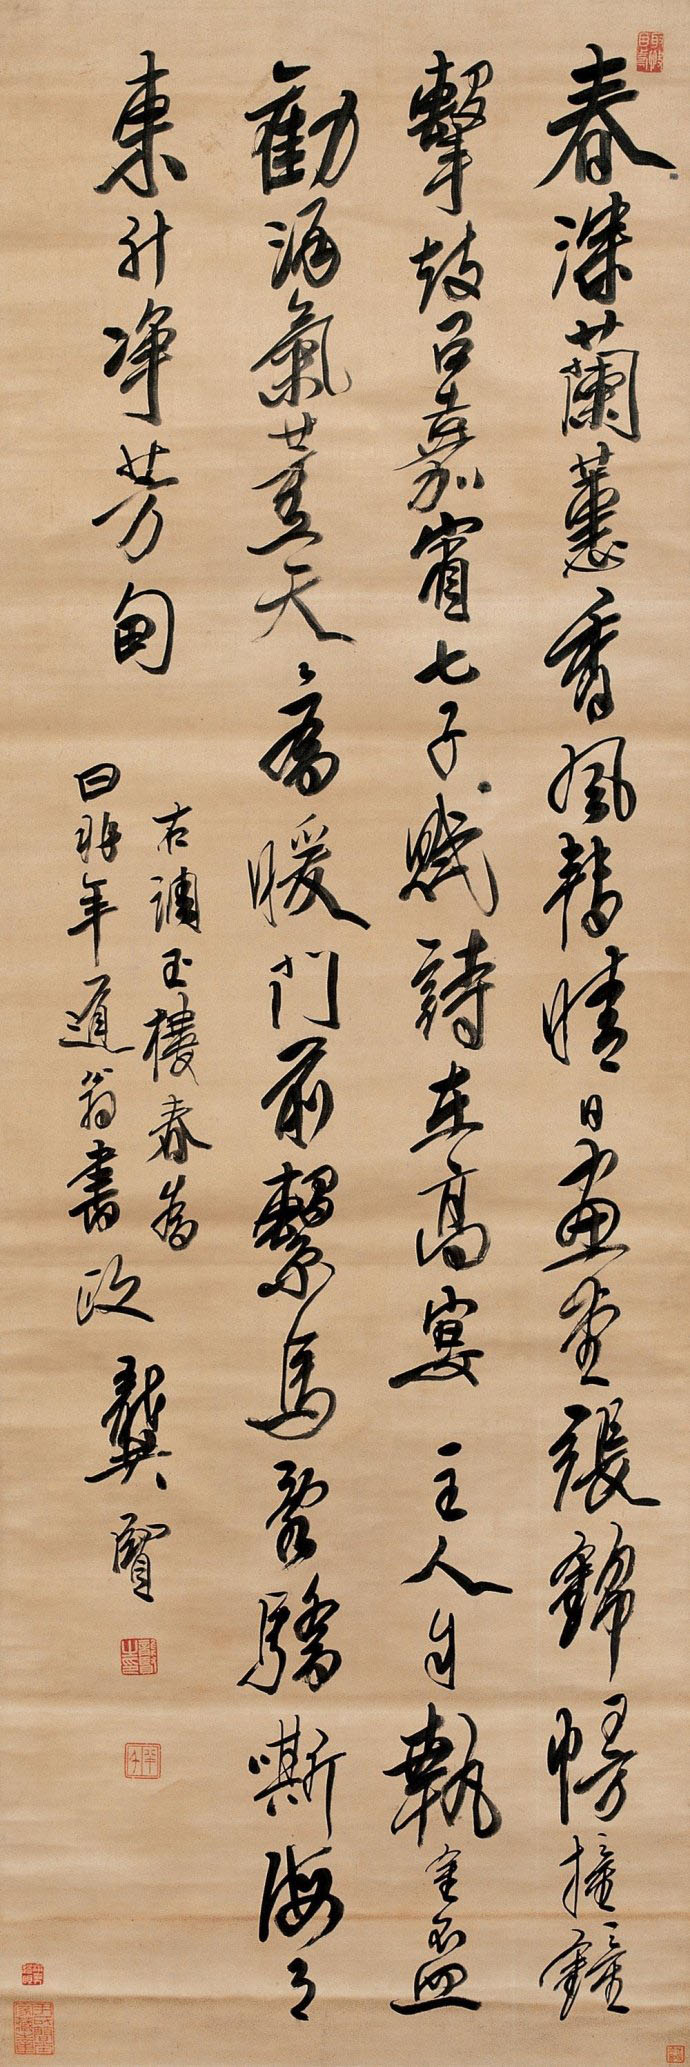 春深蘭蕙香風轉晴日畫堂張錦幔撞鐘
擊鼓召嘉賓七子賦詩在高宴主人自執金盃
勸酒氣薰天天暖門前繫馬多驕嘶海月
東升淨芳甸
右調玉樓春為
年道翁書政 龔賢